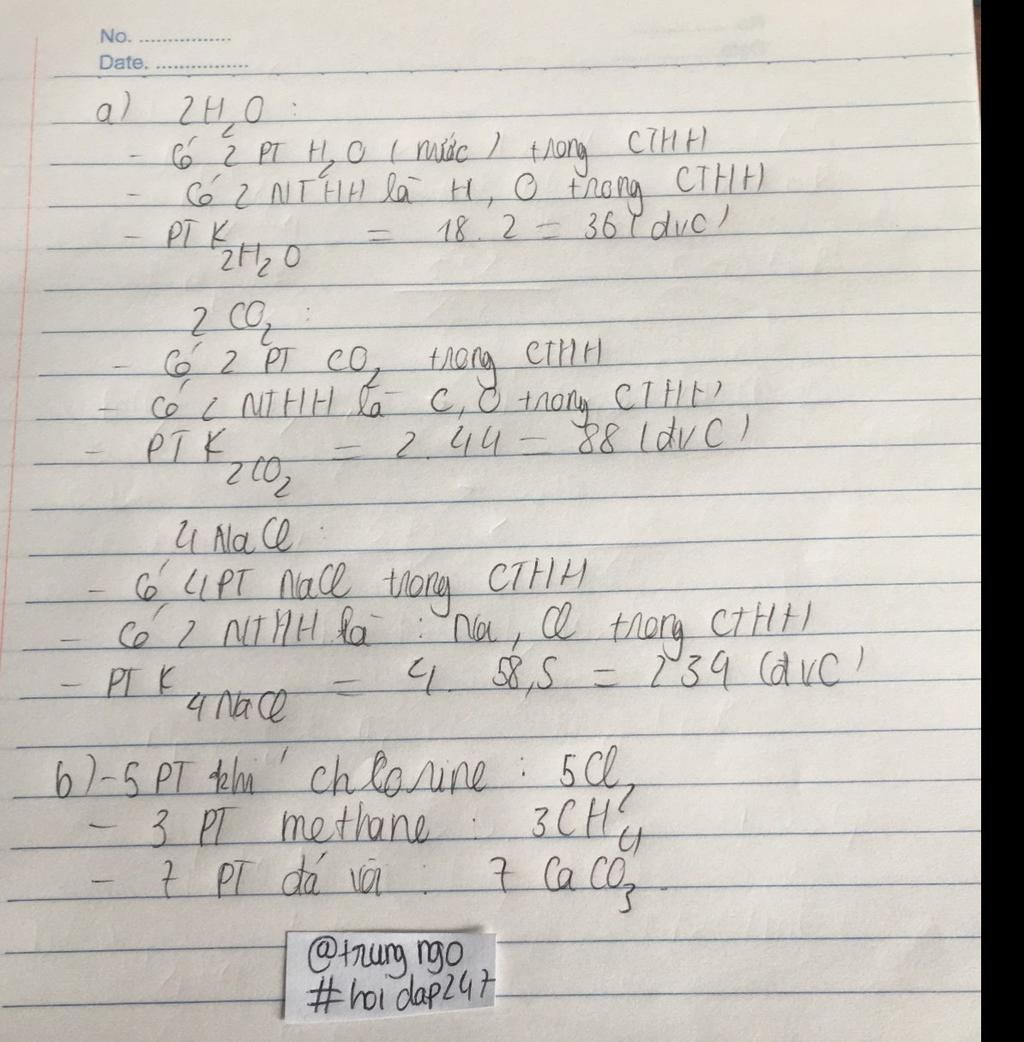 No. ................
Date. ................
a) 2H₂O :
- Có 2 PT H₂O (nước) trong CTHH
- Có 2 NTHH là H, O trong CTHH
- PTK 2H₂O = 18. 2 = 36 (dvC)
2 CO₂ :
- Có 2 PT CO₂ trong CTHH
- Có 2 NTHH là C, O trong CTHH
- PTK 2CO₂ = 2. 44 = 88 (dvC)
4 NaCl :
- Có 4 PT NaCl trong CTHH
- Có 2 NTHH là : Na, Cl trong CTHH
- PTK 4NaCl = 4. 58,5 = 234 (dvC)
b) - 5 PT khí chlorine : 5Cl₂
- 3 PT methane : 3CH₄
- 7 PT đá vôi : 7 CaCO₃.
@trung ngo
#hoi dap247